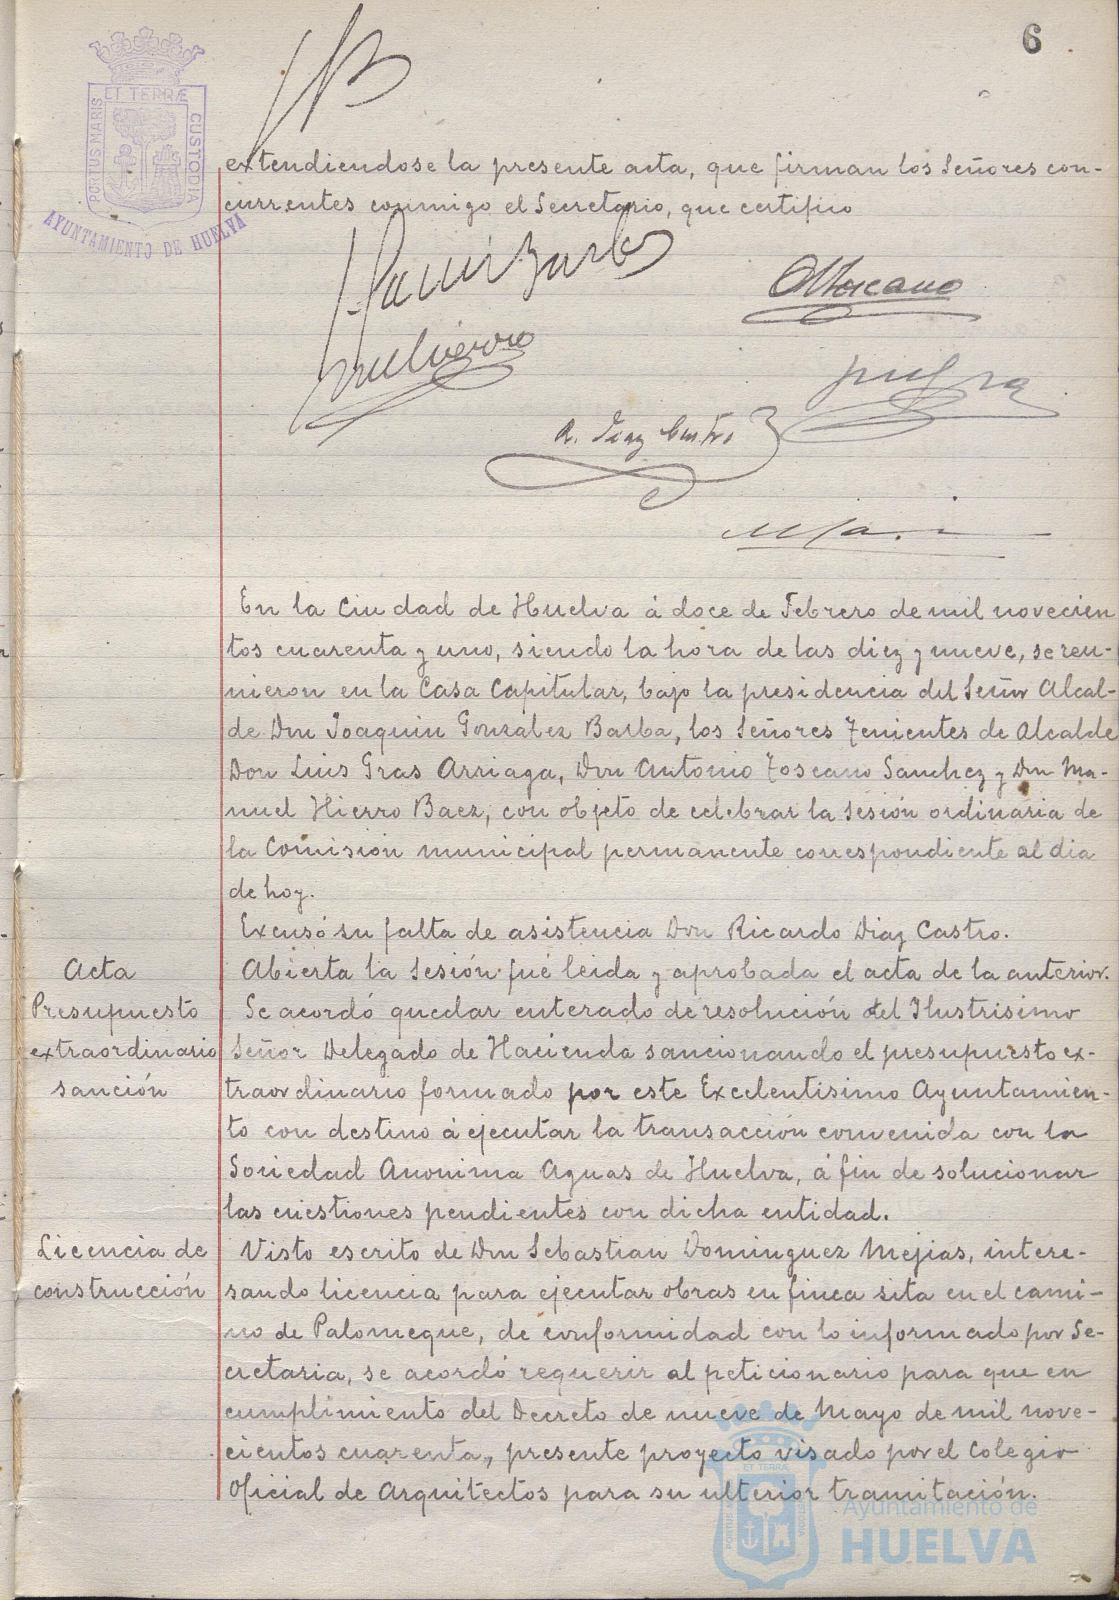 6
PORTUS MARIS ET TERRÆ CUSTODIA
AYUNTAMIENTO DE HUELVA
extendiendose la presente acta, que firman los Señores con-
currentes conmigo el Secretario, que certifico
A Toscano
R. Diaz Castro
En la Ciudad de Huelva á doce de Febrero de mil novecien
tos cuarenta y uno, siendo la hora de las diez y nueve, se reu-
nieron en la Casa Capitular, bajo la presidencia del Señor Alcal-
de Don Joaquin González Barba, los Señores Tenientes de Alcalde
Don Luis Gras Arriaga, Don Antonio Toscano Sanchez y Don Ma-
nuel Hierro Baez, con objeto de celebrar la sesión ordinaria de
la Comisión municipal permanente correspondiente al dia
de hoy.
Excusó su falta de asistencia Don Ricardo Diaz Castro.
Acta
Abierta la Sesión fué leida y aprobada el acta de la anterior.
Presupuesto
extraordinario
sanción
Se acordó quedar enterado de resolución del Ilustrisimo
Señor Delegado de Hacienda sancionando el presupuesto ex-
traordinario formado por este Excelentisimo Ayuntamien-
to con destino á ejecutar la transacción convenida con la
Sociedad Anonima Aguas de Huelva, á fin de solucionar
las cuestiones pendientes con dicha entidad.
Licencia de
construcción
Visto escrito de Don Sebastian Dominguez Mejias, intere-
sando licencia para ejecutar obras en finca sita en el cami-
no de Palomeque, de conformidad con lo informado por Se-
cretaria, se acordó requerir al peticionario para que en
cumplimiento del Decreto de nueve de Mayo de mil nove-
cientos cuarenta, presente proyecto visado por el Colegio
Oficial de Arquitectos para su ulterior tramitación.
Ayuntamiento de
HUELVA